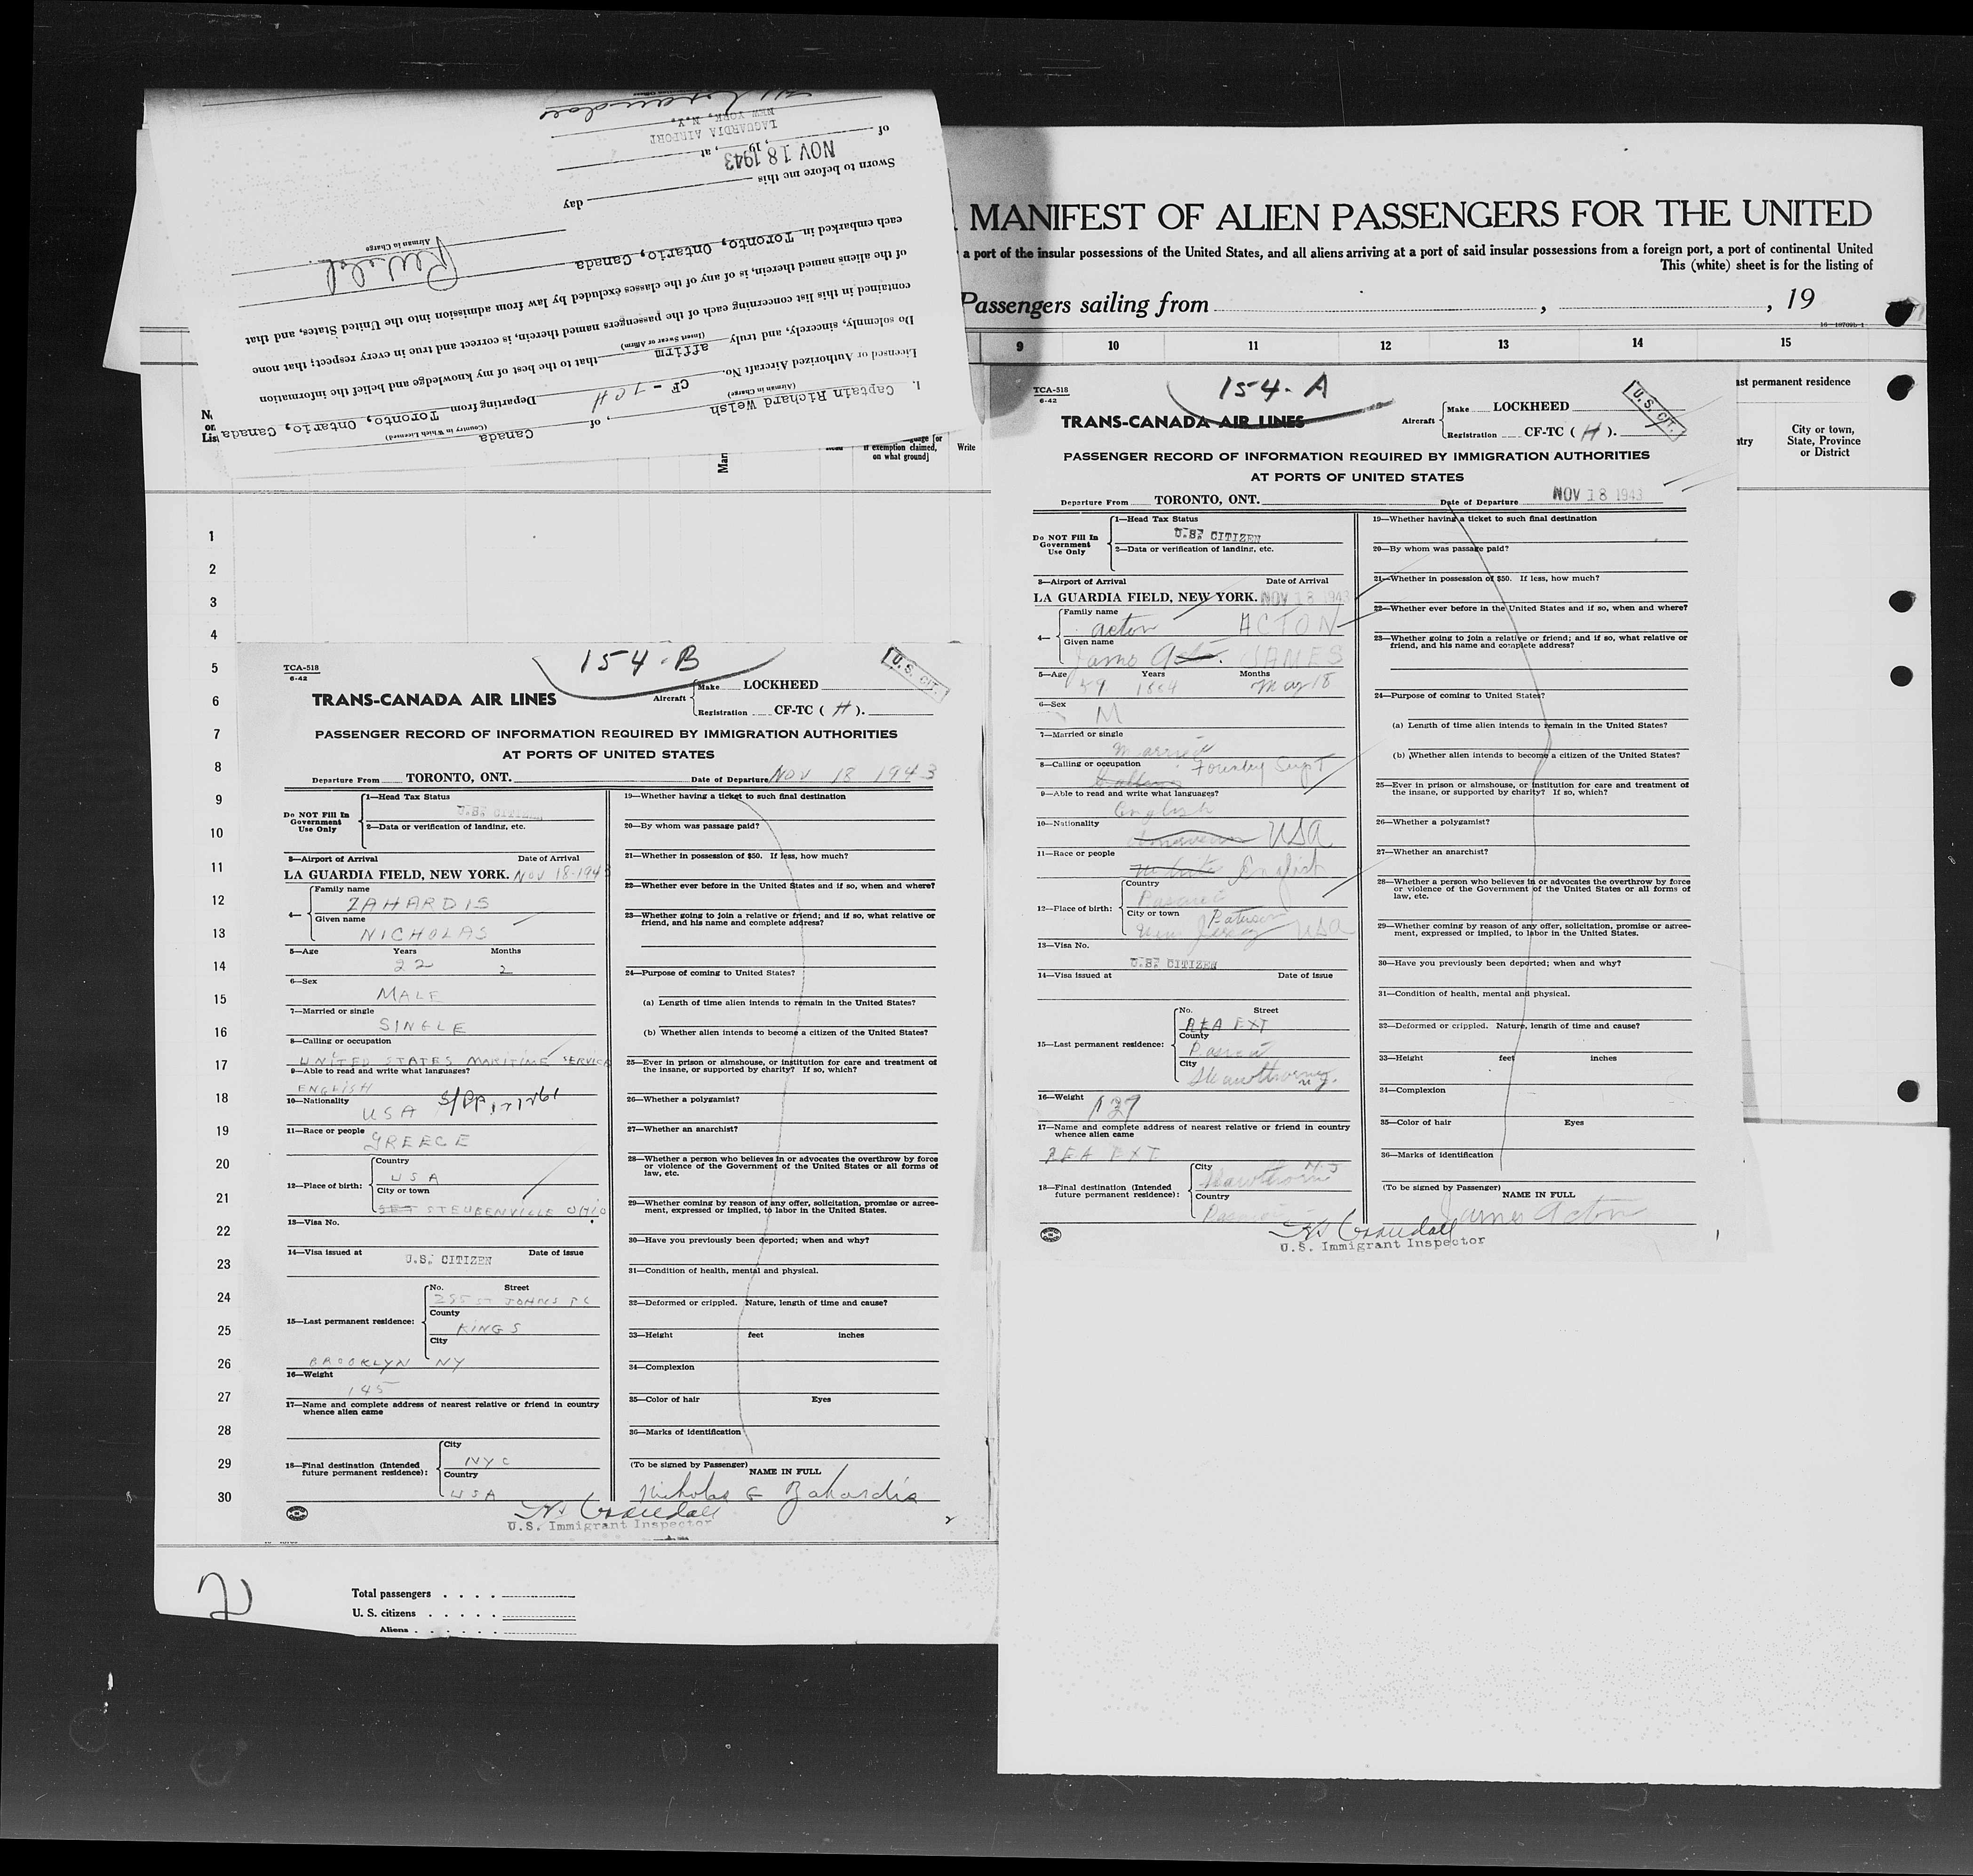 I, Captain Richard Welsh, of Canada
(Airman in Charge) (Country in Which Licensed)
Licensed or Authorized Aircraft No. CF-TCH Departing from Toronto, Ontario, Canada
Do solemnly, sincerely, and truly affirm that to the best of my knowledge and belief the information
(Insert Swear or Affirm)
contained in this list concerning each of the passengers named therein, is correct and true in every respect; that none
of the aliens named therein, is of any of the classes excluded by law from admission into the United States, and that
each embarked in Toronto, Ontario, Canada
Airman in Charge
Sworn to before me this day
of , 19 , at
NOV 18 1943
LAGUARDIA AIRPORT
NEW YORK, N.Y.
MANIFEST OF ALIEN PASSENGERS FOR THE UNITED
a port of the insular possessions of the United States, and all aliens arriving at a port of said insular possessions from a foreign port, a port of continental United
This (white) sheet is for the listing of
Passengers sailing from , , 19
9 10 11 12 13 14 15
ast permanent residence
City or town,
State, Province
or District
if exemption claimed,
on what ground]
Write
1
2
3
4
5
6
7
8
9
10
11
12
13
14
15
16
17
18
19
20
21
22
23
24
25
26
27
28
29
30
154-B
U.S. CIT.
TCA-518
6-42
TRANS-CANADA AIR LINES
Aircraft Make LOCKHEED
Registration CF-TC ( H ).
PASSENGER RECORD OF INFORMATION REQUIRED BY IMMIGRATION AUTHORITIES
AT PORTS OF UNITED STATES
Departure From TORONTO, ONT. Date of Departure NOV 18 1943
Do NOT Fill In
Government
Use Only
1—Head Tax Status
U.S. CITIZEN
2—Data or verification of landing, etc.
3—Airport of Arrival Date of Arrival
LA GUARDIA FIELD, NEW YORK. NOV 18-1943
4— Family name
ZAHARDIS
Given name
NICHOLAS
5—Age Years Months
22 2
6—Sex
MALE
7—Married or single
SINGLE
8—Calling or occupation
UNITED STATES MARITIME SERVICE
9—Able to read and write what languages?
ENGLISH
10—Nationality
USA
11—Race or people
GREECE
12—Place of birth: Country
USA
City or town
STEUBENVILLE OHIO
13—Visa No.
14—Visa issued at Date of issue
U.S. CITIZEN
15—Last permanent residence: No. Street
ST JOHNS PL
County
KINGS
City
BROOKLYN NY
16—Weight
145
17—Name and complete address of nearest relative or friend in country
whence alien came
18—Final destination (Intended
future permanent residence):
City
NYC
Country
USA
19—Whether having a ticket to such final destination
20—By whom was passage paid?
21—Whether in possession of $50. If less, how much?
22—Whether ever before in the United States and if so, when and where?
23—Whether going to join a relative or friend; and if so, what relative or
friend, and his name and complete address?
24—Purpose of coming to United States?
(a) Length of time alien intends to remain in the United States?
(b) Whether alien intends to become a citizen of the United States?
25—Ever in prison or almshouse, or institution for care and treatment of
the insane, or supported by charity? If so, which?
26—Whether a polygamist?
27—Whether an anarchist?
28—Whether a person who believes in or advocates the overthrow by force
or violence of the Government of the United States or all forms of
law, etc.
29—Whether coming by reason of any offer, solicitation, promise or agree-
ment, expressed or implied, to labor in the United States.
30—Have you previously been deported; when and why?
31—Condition of health, mental and physical.
32—Deformed or crippled. Nature, length of time and cause?
33—Height feet inches
34—Complexion
35—Color of hair Eyes
36—Marks of identification
(To be signed by Passenger)
NAME IN FULL
Nicholas G Zahardis
U.S. Immigrant Inspector
Total passengers
U. S. citizens
Aliens
154-A
U.S. CIT.
TCA-518
6-42
TRANS-CANADA AIR LINES
Aircraft Make LOCKHEED
Registration CF-TC ( H ).
PASSENGER RECORD OF INFORMATION REQUIRED BY IMMIGRATION AUTHORITIES
AT PORTS OF UNITED STATES
Departure From TORONTO, ONT. Date of Departure NOV 18 1943
Do NOT Fill In
Government
Use Only
1—Head Tax Status
U.S. CITIZEN
2—Data or verification of landing, etc.
3—Airport of Arrival Date of Arrival
LA GUARDIA FIELD, NEW YORK. NOV 18 1943
4— Family name
Acton ACTON
Given name
James JAMES
5—Age Years Months
59 1884 May 18
6—Sex
M
7—Married or single
Married
8—Calling or occupation
Foundry Supt
9—Able to read and write what languages?
English
10—Nationality
USA
11—Race or people
White English
12—Place of birth: Country
Passaic
City or town Paterson
New Jersey USA
13—Visa No.
U.S. CITIZEN
14—Visa issued at Date of issue
15—Last permanent residence: No. Street
REA EXT
County
Passaic
City
Hawthorne N.J.
16—Weight
137
17—Name and complete address of nearest relative or friend in country
whence alien came
REA EXT
18—Final destination (Intended
future permanent residence):
City
Hawthorne N.J
Country
Passaic
19—Whether having a ticket to such final destination
20—By whom was passage paid?
21—Whether in possession of $50. If less, how much?
22—Whether ever before in the United States and if so, when and where?
23—Whether going to join a relative or friend; and if so, what relative or
friend, and his name and complete address?
24—Purpose of coming to United States?
(a) Length of time alien intends to remain in the United States?
(b) Whether alien intends to become a citizen of the United States?
25—Ever in prison or almshouse, or institution for care and treatment of
the insane, or supported by charity? If so, which?
26—Whether a polygamist?
27—Whether an anarchist?
28—Whether a person who believes in or advocates the overthrow by force
or violence of the Government of the United States or all forms of
law, etc.
29—Whether coming by reason of any offer, solicitation, promise or agree-
ment, expressed or implied, to labor in the United States.
30—Have you previously been deported; when and why?
31—Condition of health, mental and physical.
32—Deformed or crippled. Nature, length of time and cause?
33—Height feet inches
34—Complexion
35—Color of hair Eyes
36—Marks of identification
(To be signed by Passenger)
NAME IN FULL
James Acton
U.S. Immigrant Inspector